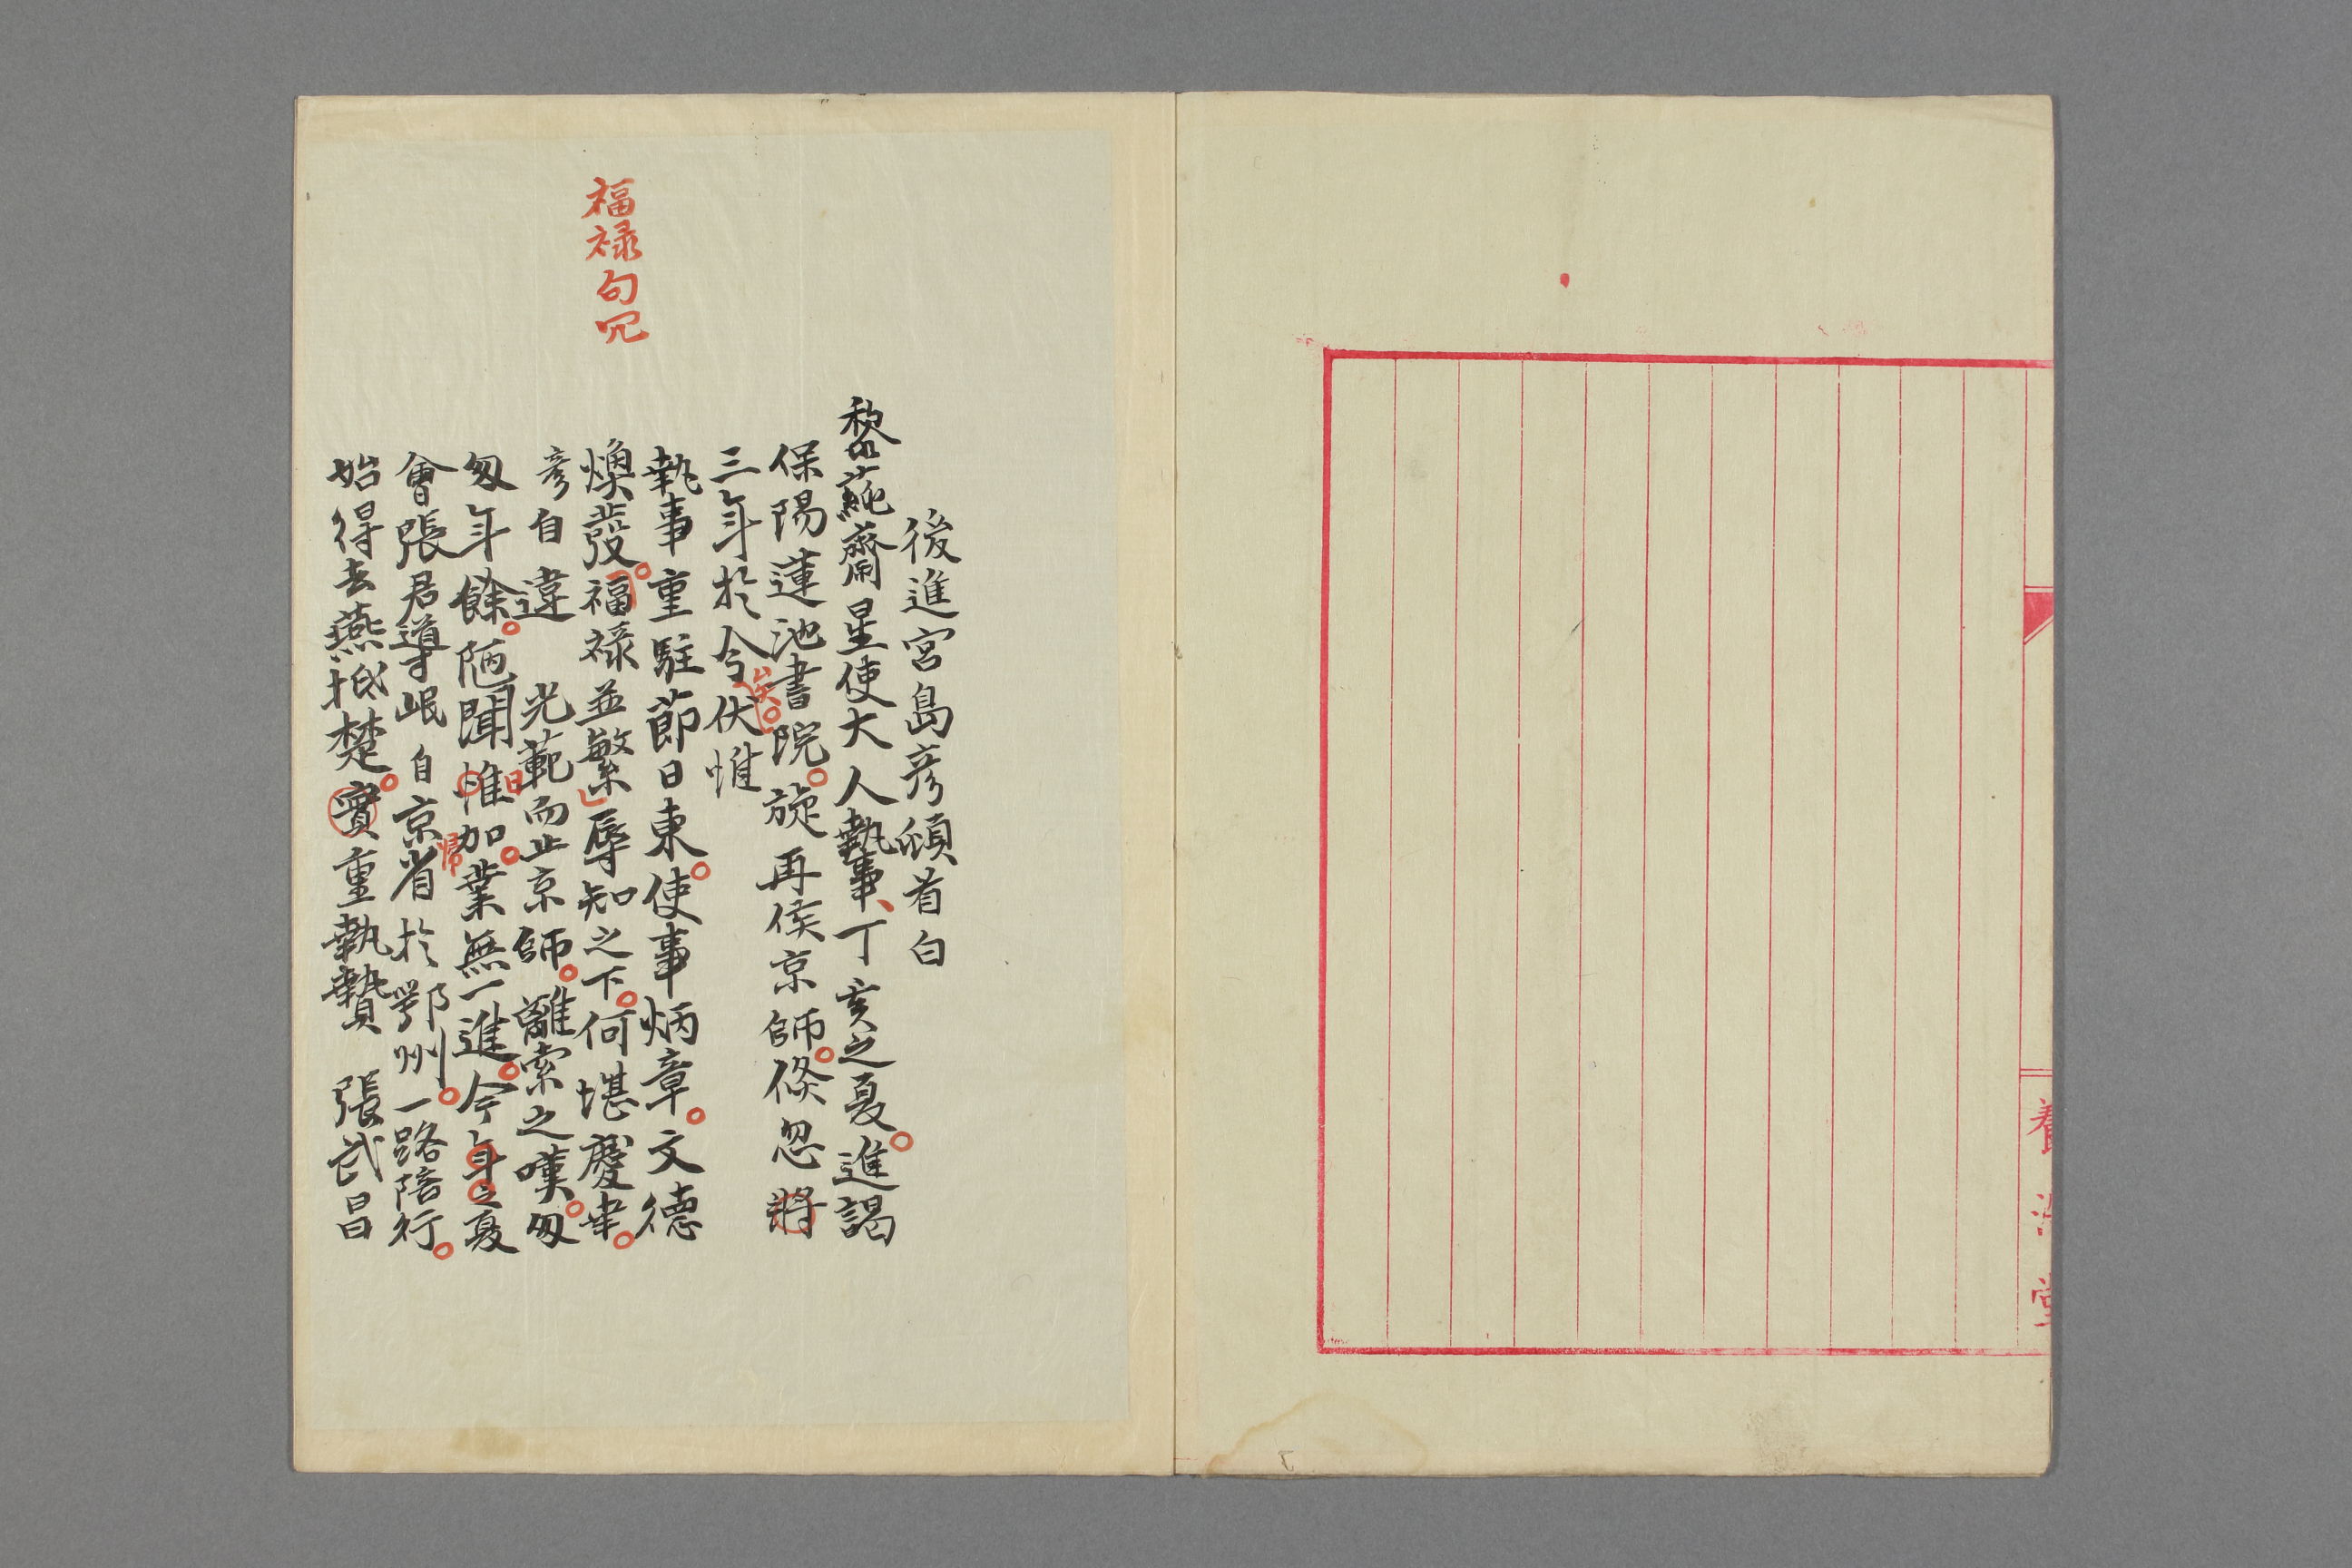 後進宮島彦頓首白
黎蒓齋星使大人執事、丁亥之夏。進謁
保陽蓮池書院。旋再侯京師。倏忽將
三年於今矣。伏惟
執事重駐節日東。使事炳章。文德
煥發。福祿並繁辱知之下。何堪慶幸。
彦自違 光範而止京師。離索之嘆。匆
匆年餘。陋聞惟日加。業無一進。今年之夏
會張君導岷自京歸省於鄂州。一路陪行。
始得去燕抵楚。實重執贄 張武昌
福禄句冗
養浩堂